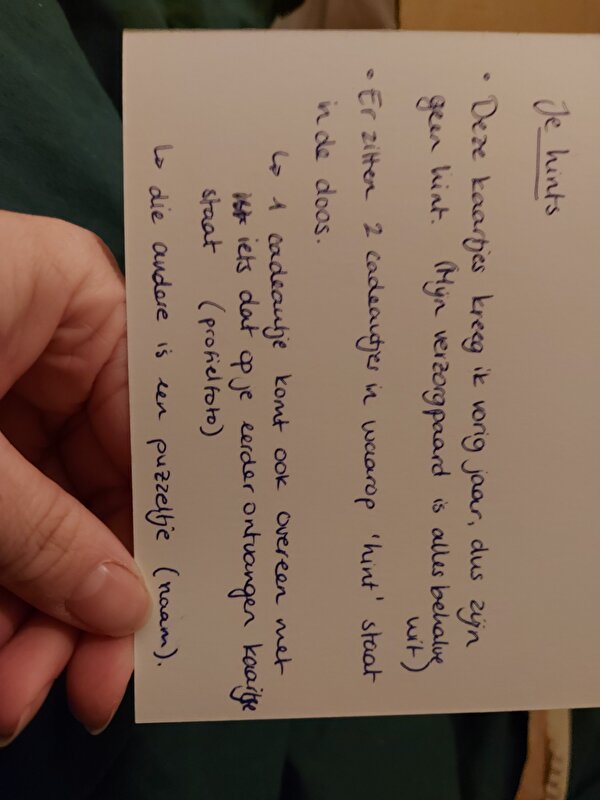 Je hints
• Deze kaartjes kreeg ik vorig jaar, dus zijn
geen hint. (Mijn verzorgpaard is alles behalve
wit)
• Er zitten 2 cadeautjes in waarop 'hint' staat
in de doos.
↳ 1 cadeautje komt ook overeen met
iets dat op je eerder ontvangen kaartje
staat (profielfoto)
↳ die andere is een puzzeltje (naam).